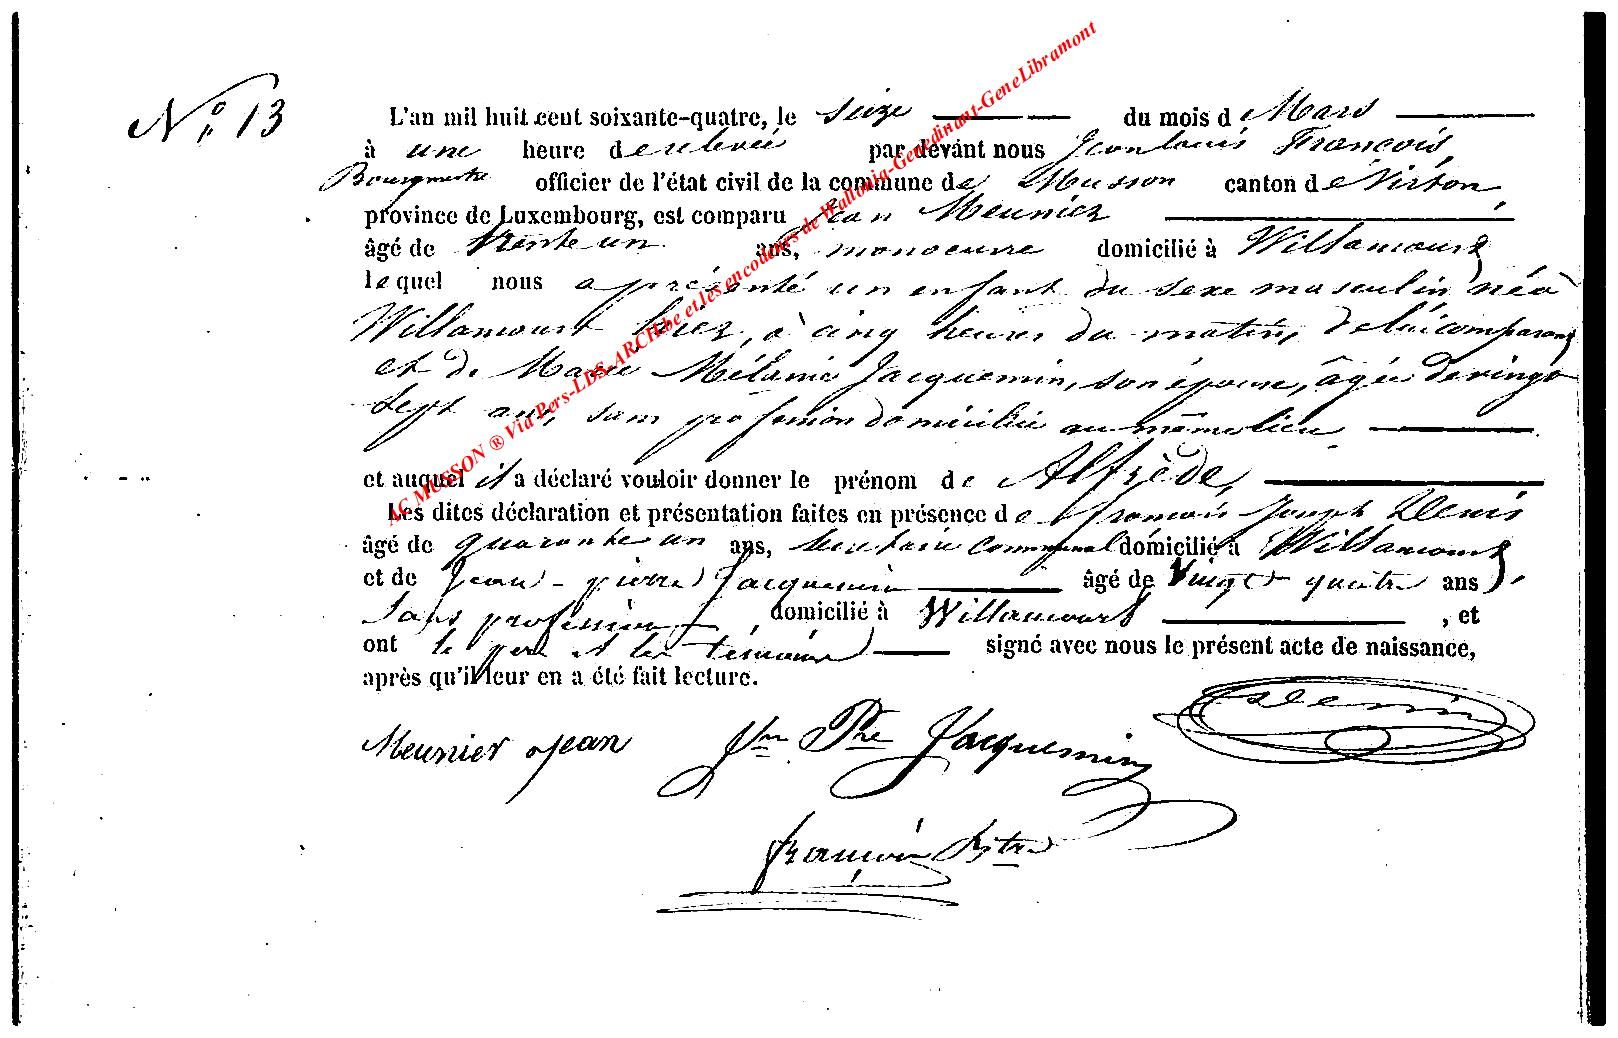 N° 13
L'an mil huit cent soixante-quatre, le seize du mois d Mars
à une heure de relevée par devant nous Jean louis François,
Bourgmestre officier de l'état civil de la commune de Musson canton de Virton,
province de Luxembourg, est comparu Jean Meunier
âgé de trente un ans, manoeuvre domicilié à Willancourt,
lequel nous a présenté un enfant du sexe masculin, né à
Willancourt hier, à cinq heures du matin, de lui comparant
et de Marie Mélanie Jacquemin, son épouse, âgée de vingt
sept ans, sans profession domiciliée au même lieu
et auquel il a déclaré vouloir donner le prénom de Alfrède,
Les dites déclaration et présentation faites en présence de françois Joseph Denis
âgé de quarante un ans, secrétaire communal domicilié à Willancourt
et de Jean-pierre Jacquemin âgé de Vingt quatre ans,
Sans profession domicilié à Willancourt, et
ont le père et les témoins signé avec nous le présent acte de naissance,
après qu'il leur en a été fait lecture.
Meunier Jean Jn Pre Jacquemin Denis
françois Bstre
AC MUSSON ® Via Pers-LDS-ARCH.be et les encodeurs de Wallonia-Genedinant-GeneLibramont